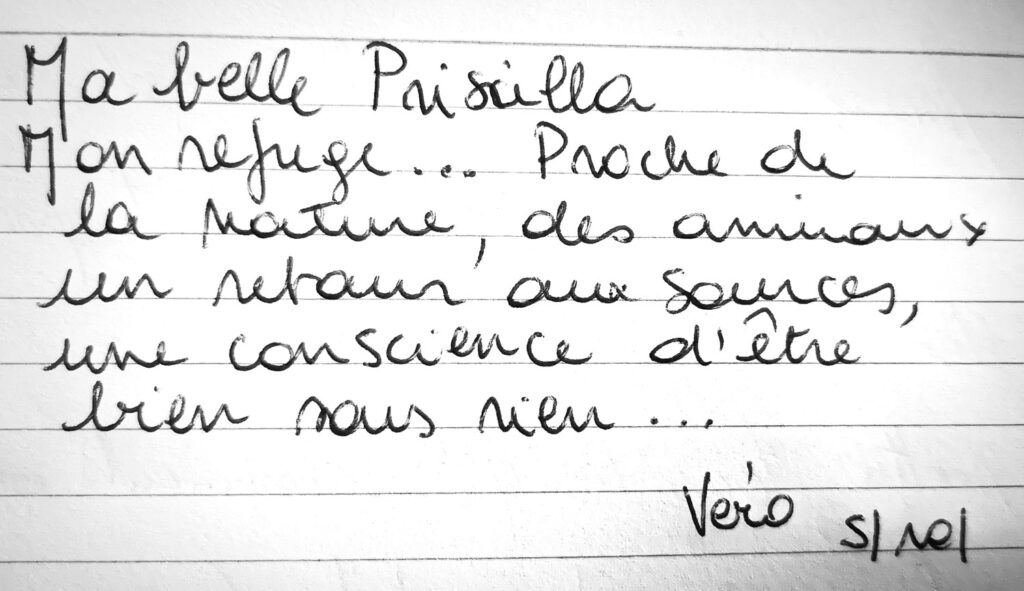 Ma belle Priscilla
Mon refuge... Proche de
la nature, des animaux
un retour aux sources,
une conscience d'être
bien sans rien...
Véro